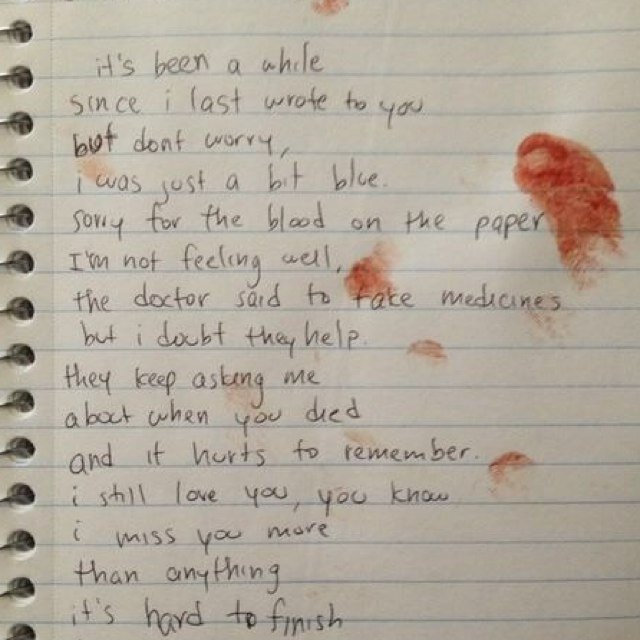 it's been a while
since i last wrote to you
but dont worry,
i was just a bit blue.
sorry for the blood on the paper
I'm not feeling well,
the doctor said to take medicines
but i doubt they help.
they keep asking me
about when you died
and it hurts to remember.
i still love you, you know
i miss you more
than anything
it's hard to finish